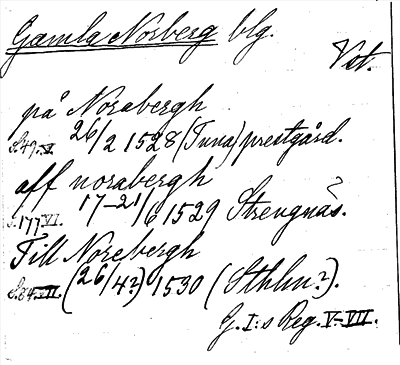 Gamla Norberg blg.
Vst.
på Norabergh
S.49.V 26/2 1528 (Tuna) prestgård.
aff norabergh
S.177.VI. 17-21/6 1529 Strengnäs.
Till Norebergh
S.84.VII. (26/4?) 1530 (Sthlm?).
G.I:s Reg. V-VII.